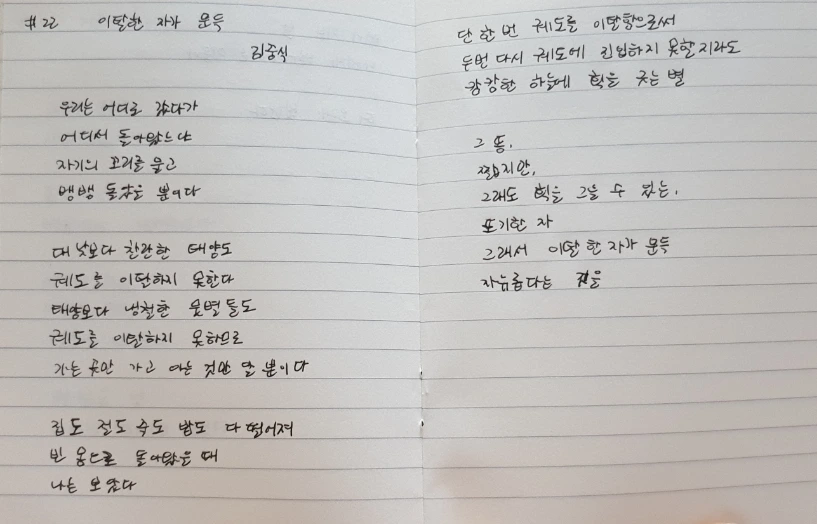 #22 이탈한 자가 문득
김중식
우리는 어디로 갔다가
어디서 돌아왔느냐
자기의 꼬리를 물고
뱅뱅 돌았을 뿐이다
대낮보다 찬란한 태양도
궤도를 이탈하지 못한다
태양보다 냉철한 뭇별들도
궤도를 이탈하지 못하므로
가는 곳만 가고 아는 것만 알 뿐이다
집도 절도 죽도 밥도 다 떨어져
빈 몸으로 돌아왔을 때
나는 보았다
단 한 번 궤도를 이탈함으로써
두번 다시 궤도에 진입하지 못할지라도
캄캄한 하늘에 획을 긋는 별
그 똥,
짧지만,
그래도 획을 그을 수 있는,
포기한 자
그래서 이탈 한 자가 문득
자유롭다는 것을